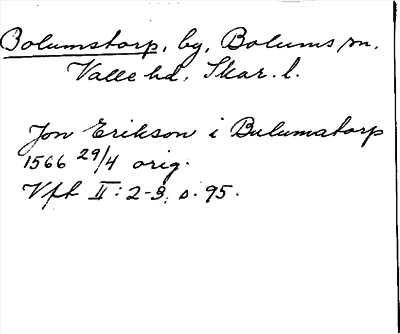 Bolumstorp, by, Bolums sn.
Valle hd, Skar. l.
Jon Erikson i Bulumatorp
1566 29/4 orig.
Vft II: 2-3, s. 95.